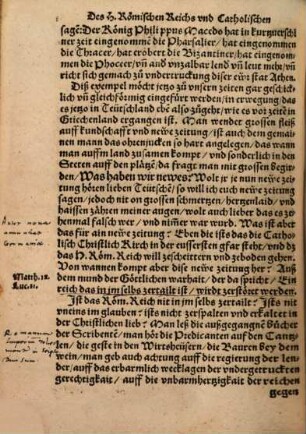 Des H. Römischen Reichs vnd Catholischen
sagē: Der König Philippus Macedo hat in kurtzuerschi
ner zeit eingenommē die Pharsalier/ hat eingenommen
die Thracer/ hat eröbert die Bizantiner/ hat eingenommen
die Phoceer/ vñ and vnzalbar lend vñ leut mehr/ vñ
richt sich gemach zu vndertruckung diser eüer stat Athen.
Diß exempel möcht jetzo zu vnsern zeiten gar geschick
lich vñ gleichförmig eingefüert werden/ in erwegung/ das
es jetzo in Teütschland ebē also zugehet/ wie es vor zeitē in
Griechenland ergangen ist. Man wendet grossen fleiß
auff Fundschafft vnd newe zeitung/ ist auch dem gemai-
nen mann das ohrenjucken so hart angelegen/ das wann
man auffm land zusamen kompt/ vnd sonderlich in den
Stetten auff den plätzē/ da fragt man mit grossen begir-
den/ Was haben wir newes? Wolt jr je nun newe zei-
tung hören lieben Teütschē? so will ich euch newe zeitung
sagen/ jedoch nit on grossen schmertzen/ hertzenlaid/ vnd
haissen zähern meiner augen/ wolt auch lieber das es ze-
henmal falsch wer/ vnd nimmer war wurd. Was ist aber
das für ain newe zeitung? Eben die ists/ das die Catho-
lisch Christlich Kirch in der eussersten gfar steht/ vnd dz
das H. Röm. Reich will zescheittern vnd zeboden gehen.
Von wannen kompt aber dise newe zeitung her? Auß
dem mund der Göttlichen warhait/ der da spricht/ Ein
reich das in jm selbs zertailt ist/ wirdt zerstöret werden.
Matth. 12.
Luc. 11.
Ist das Röm. Reich nit in jm selbs zertailt? ists nit
vneins im glauben? ists nicht zerspalten vnd erkaltet in
der Christlichen lieb? Man leß die außgegangnē bücher
der Scribentē/ man hör die Predicanten auff den Cantz-
len/ die geste in den Wirtsheüsern/ die Bauren bey dem
wein/ man geb auch achtung auff die regierung der len-
der/ auff das erbarmlich wecklagen der vndergetruckten
gerechtigkeit/ auff die vnbarmhertzigkait der reichen
gegen